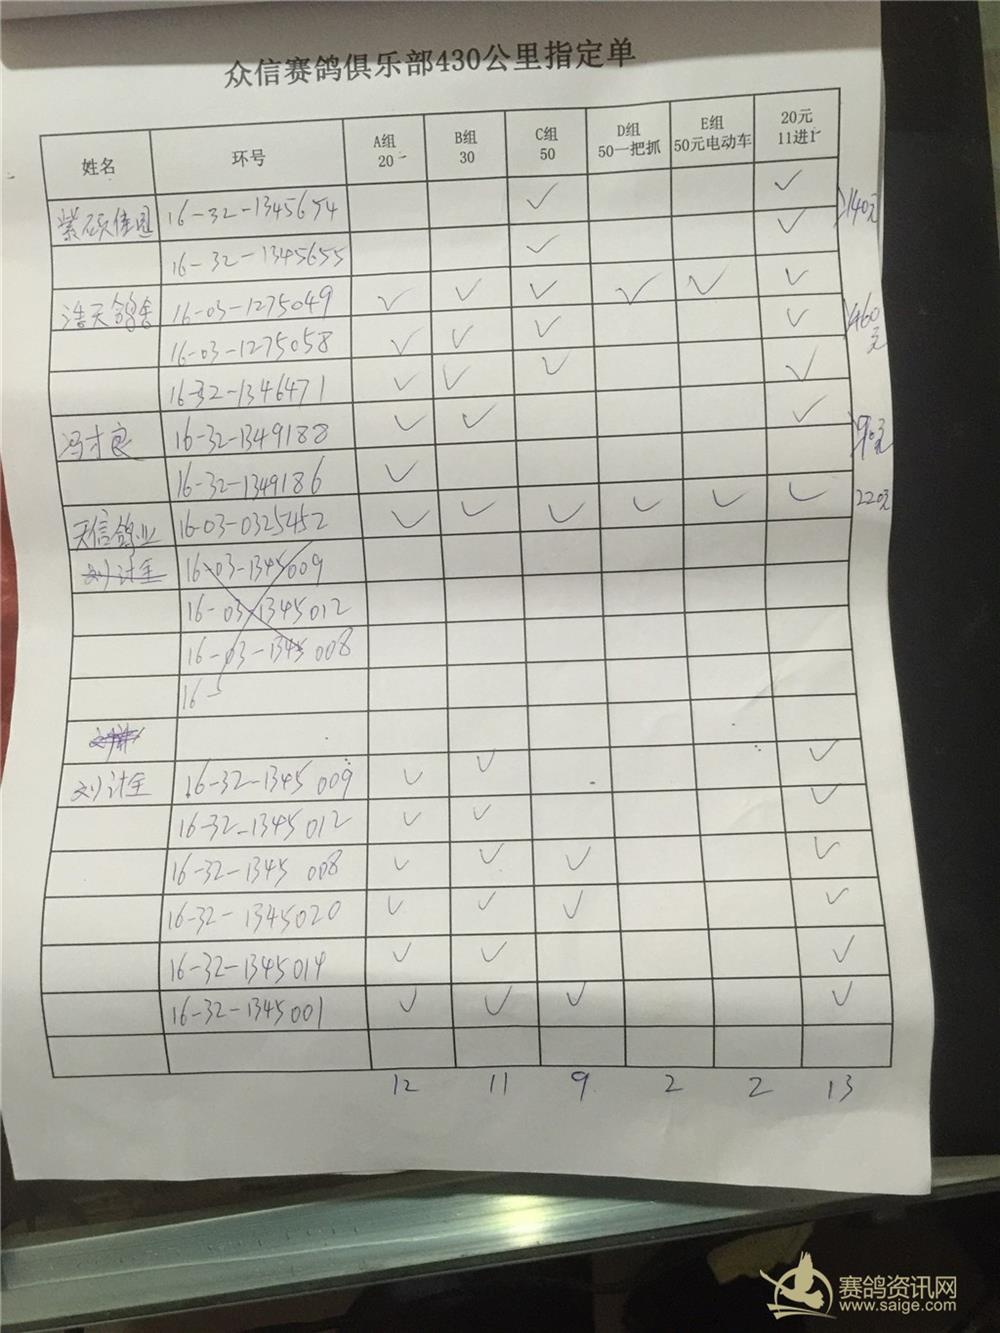 众信赛鸽俱乐部430公里指定单
姓名 环号 A组 20 B组 30 C组 50 D组 50一把抓 E组 50元电动车 20元 11进1
紫硕佳园 16-32-1345654 ✓ ✓ 140元
16-32-1345655 ✓ ✓
浩天鸽舍 16-03-1275049 ✓ ✓ ✓ ✓ ✓ ✓
16-03-1275058 ✓ ✓ ✓ ✓ 460元
16-32-1346471 ✓ ✓ ✓ ✓
冯才良 16-32-1349188 ✓ ✓ ✓ 90元
16-32-1349186 ✓
天信鸽业 16-03-0325452 ✓ ✓ ✓ ✓ ✓ ✓ 220元
刘计全 16-03-1345009
16-03-1345012
16-03-1345008
16-
刘计全 16-32-1345009 ✓ ✓ ✓
16-32-1345012 ✓ ✓ ✓
16-32-1345008 ✓ ✓ ✓ ✓
16-32-1345020 ✓ ✓ ✓ ✓
16-32-1345014 ✓ ✓ ✓
16-32-1345001 ✓ ✓ ✓ ✓
12 11 9 2 2 13
赛鸽资讯网
www.saige.com